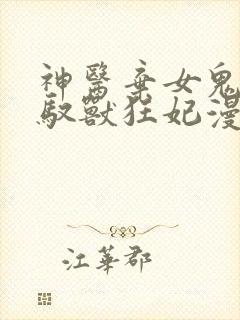 神醫棄女鬼
馭獸狂妃漫
江華郡